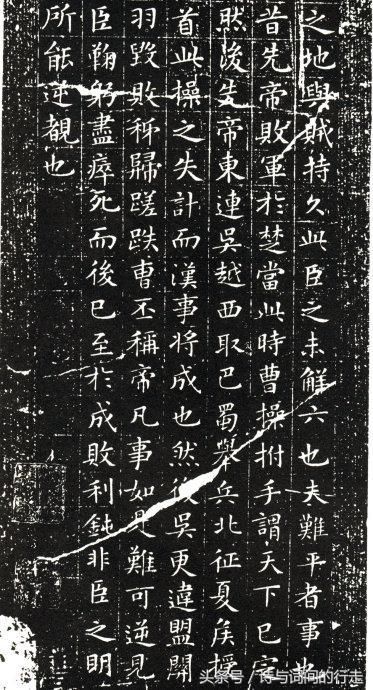 之地與賊持久此臣之未解六也夫難平者事也
昔先帝敗軍於楚當此時曹操拊手謂天下已定
然後先帝東連吳越西取巴蜀舉兵北征夏侯授
首此操之失計而漢事將成也然後吳更違盟關
羽毀敗秭歸蹉跌曹丕稱帝凡事如是難可逆見
臣鞠躬盡瘁死而後已至於成敗利鈍非臣之明
所能逆覩也
头条号／诗与词间的行走